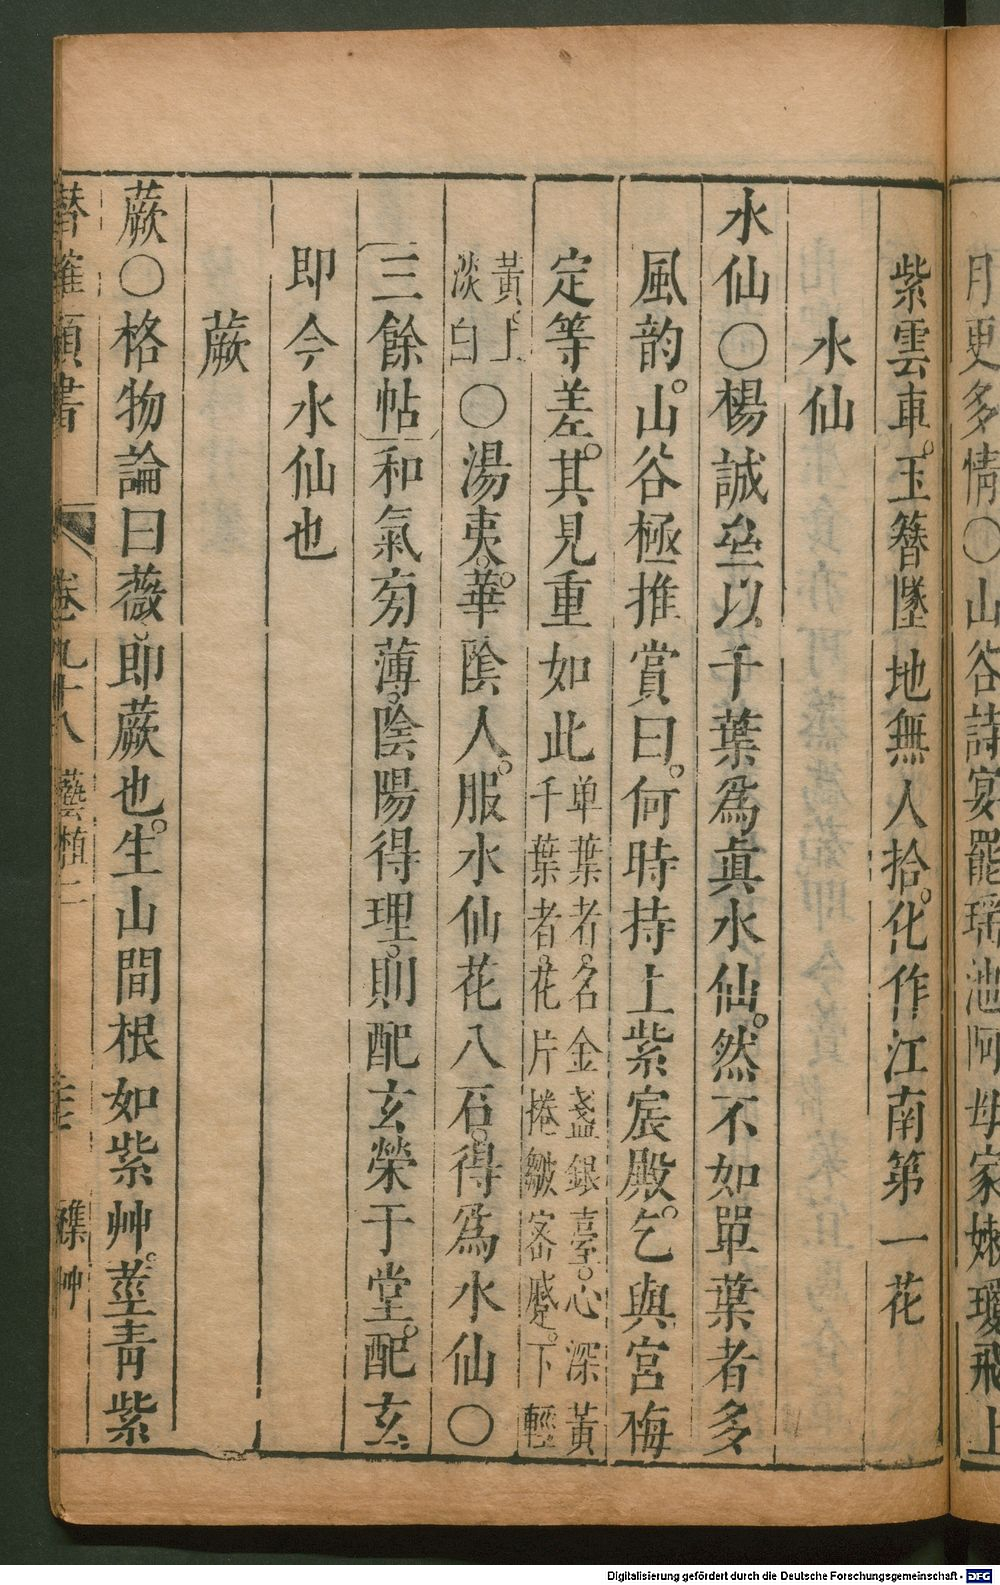 月更多情〇山谷詩宴罷瑶池阿母家嫩瓊飛上
紫雲車。玉簪墜地無人拾。化作江南第一花
水仙
水仙〇楊誠垒以千葉爲眞水仙。然不如單葉者多
風韵。山谷極推賞曰。何時持上紫宸殿。乞與宮梅
定等差。其見重如此单葉者。名金盞銀臺。心深黃
千葉者。花片捲皺密蹙。下輕
黃。上
淡白
〇湯夷。華陰人。服水仙花八石。得爲水仙〇
三餘帖和氣旁薄。陰陽得理。則配玄榮于堂。配玄
即今水仙也
蕨
蕨〇格物論曰薇即蕨也。生山間根如紫艸。莖青紫
潛確類書 卷九十八 藝植二 襍艸
Digitalisierung gefördert durch die Deutsche Forschungsgemeinschaft - DFG